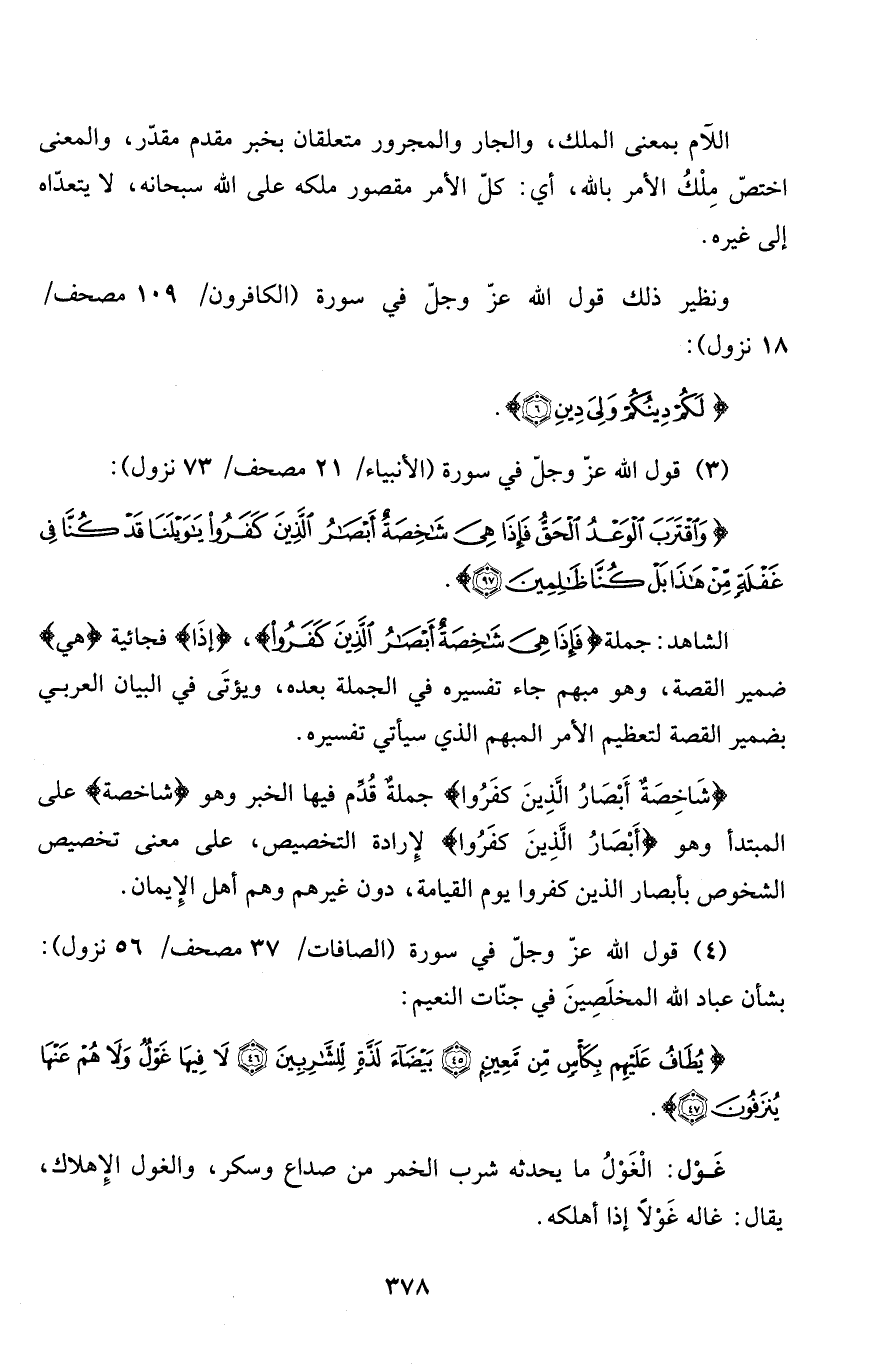 اللَّام بمعنى الملك، والجار والمجرور متعلقان بخبر مقدم مقدّر، والمعنى
اختصّ مِلْكُ الأمر بالله، أي: كلّ الأمر مقصور ملكه على الله سبحانه، لا يتعدّاه
إلى غيره.
ونظير ذلك قول الله عزّ وجلّ في سورة (الكافرون/ ١٠٩ مصحف/
١٨ نزول):
﴿لَكُمْ دِينُكُمْ وَلِيَ دِينِ ٦﴾.
(٣) قول الله عزّ وجلّ في سورة (الأنبياء/ ٢١ مصحف/ ٧٣ نزول):
﴿وَٱقْتَرَبَ ٱلْوَعْدُ ٱلْحَقُّ فَإِذَا هِىَ شَٰخِصَةٌ أَبْصَٰرُ ٱلَّذِينَ كَفَرُواْ يَٰوَيْلَنَا قَدْ كُنَّا فِى
غَفْلَةٍ مِّنْ هَٰذَا بَلْ كُنَّا ظَٰلِمِينَ ٩٧﴾.
الشاهد: جملة ﴿فَإِذَا هِىَ شَٰخِصَةٌ أَبْصَٰرُ ٱلَّذِينَ كَفَرُواْ﴾، ﴿إذَا﴾ فجائية ﴿هي﴾
ضمير القصة، وهو مبهم جاء تفسيره في الجملة بعده، ويؤتَى في البيان العربي
بضمير القصة لتعظيم الأمر المبهم الذي سيأتي تفسيره.
﴿شَاخِصَةٌ أَبْصَارُ الَّذِينَ كفَرُوا﴾ جملةٌ قُدِّم فيها الخبر وهو ﴿شاخصة﴾ على
المبتدأ وهو ﴿أَبْصَارُ الَّذِينَ كفَرُوا﴾ لإرادة التخصيص، على معنى تخصيص
الشخوص بأبصار الذين كفروا يوم القيامة، دون غيرهم وهم أهل الإيمان.
(٤) قول الله عزّ وجلّ في سورة (الصافات/ ٣٧ مصحف/ ٥٦ نزول):
بشأن عباد الله المخلَصِينَ في جنّات النعيم:
﴿يُطَافُ عَلَيْهِم بِكَأْسٍ مِّن مَّعِينٍ ٤٥ بَيْضَآءَ لَذَّةٍ لِّلشَّٰرِبِينَ ٤٦ لَا فِيهَا غَوْلٌ وَلَا هُمْ عَنْهَا
يُنزَفُونَ ٤٧﴾.
غَوْل: الْغَوْلُ ما يحدثه شرب الخمر من صداع وسكر، والغول الإهلاك،
يقال: غاله غَوْلاً إذا أهلكه.
٣٧٨